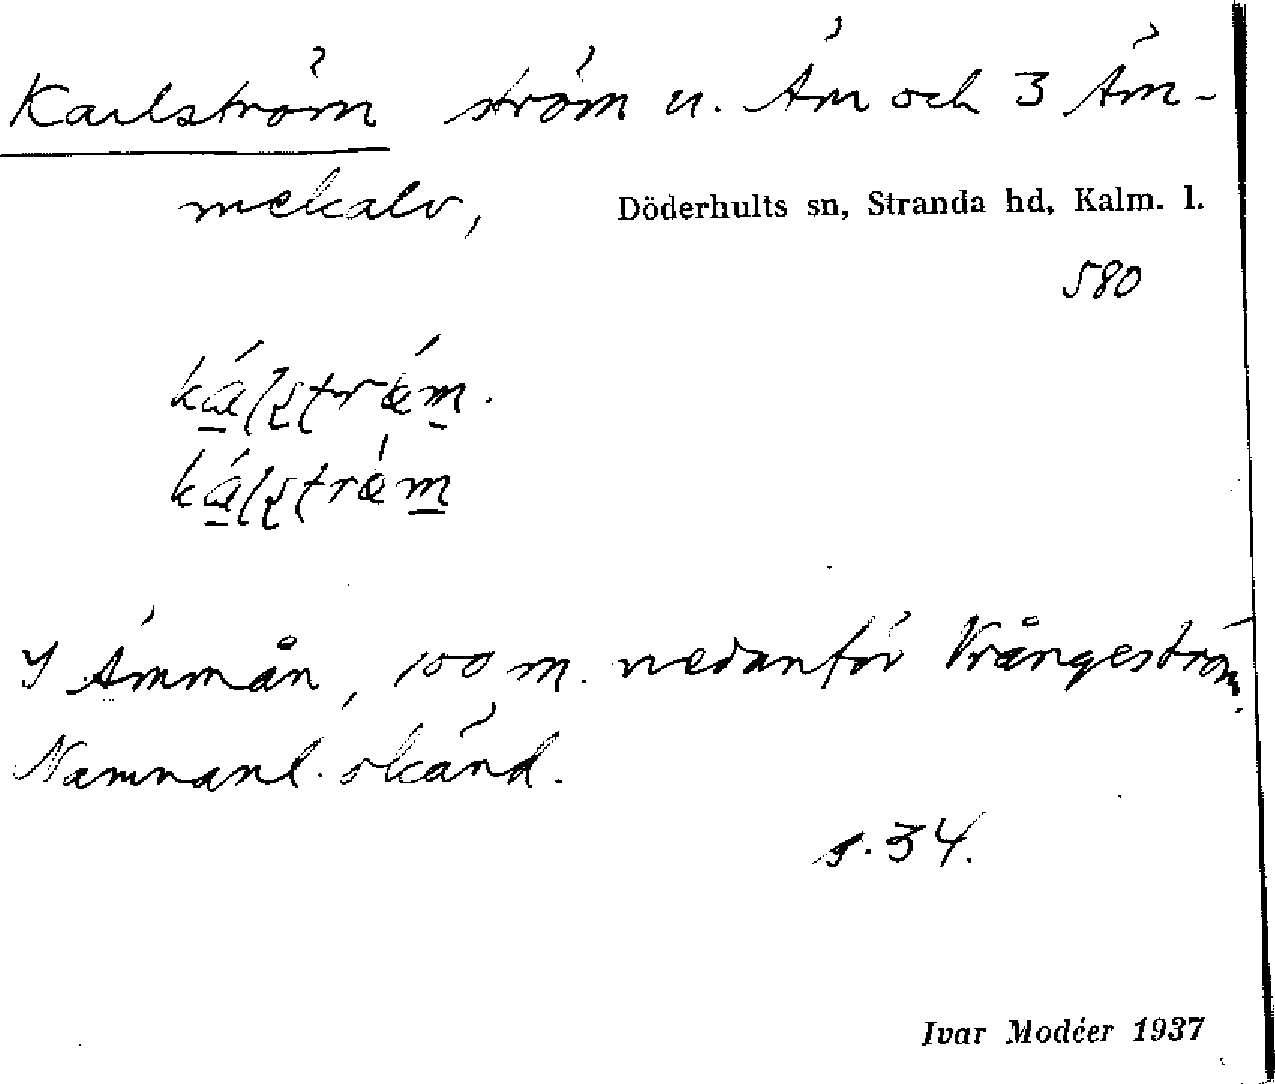 Karlström ström u. Äm och 3 Äm-
mekalv,
Döderhults sn, Stranda hd, Kalm. l.
580
I Ämmån, 100 m. nedanför Vrångeström.
Namnanl. okänd.
s. 34.
Ivar Modéer 1937